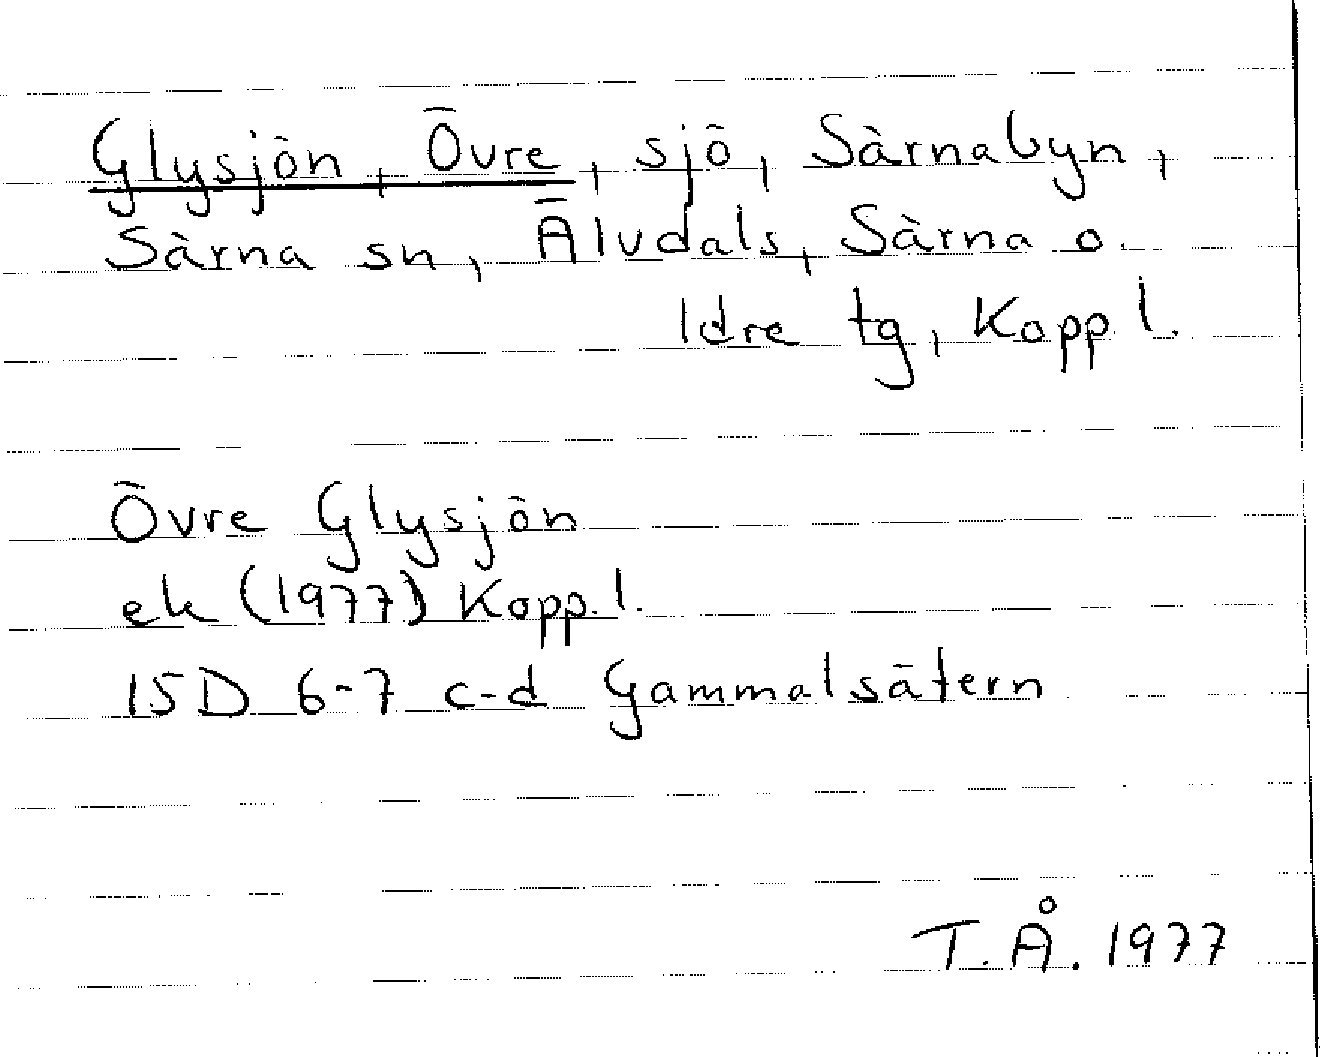 Glysjön, Övre, sjö, Särnabyn,
Särna sn, Älvdals, Särna o.
Idre tg, Kopp l.
Övre Glysjön
ek (1977) Kopp. l.
15D 6-7 c-d Gammalsätern
T.Å. 1977